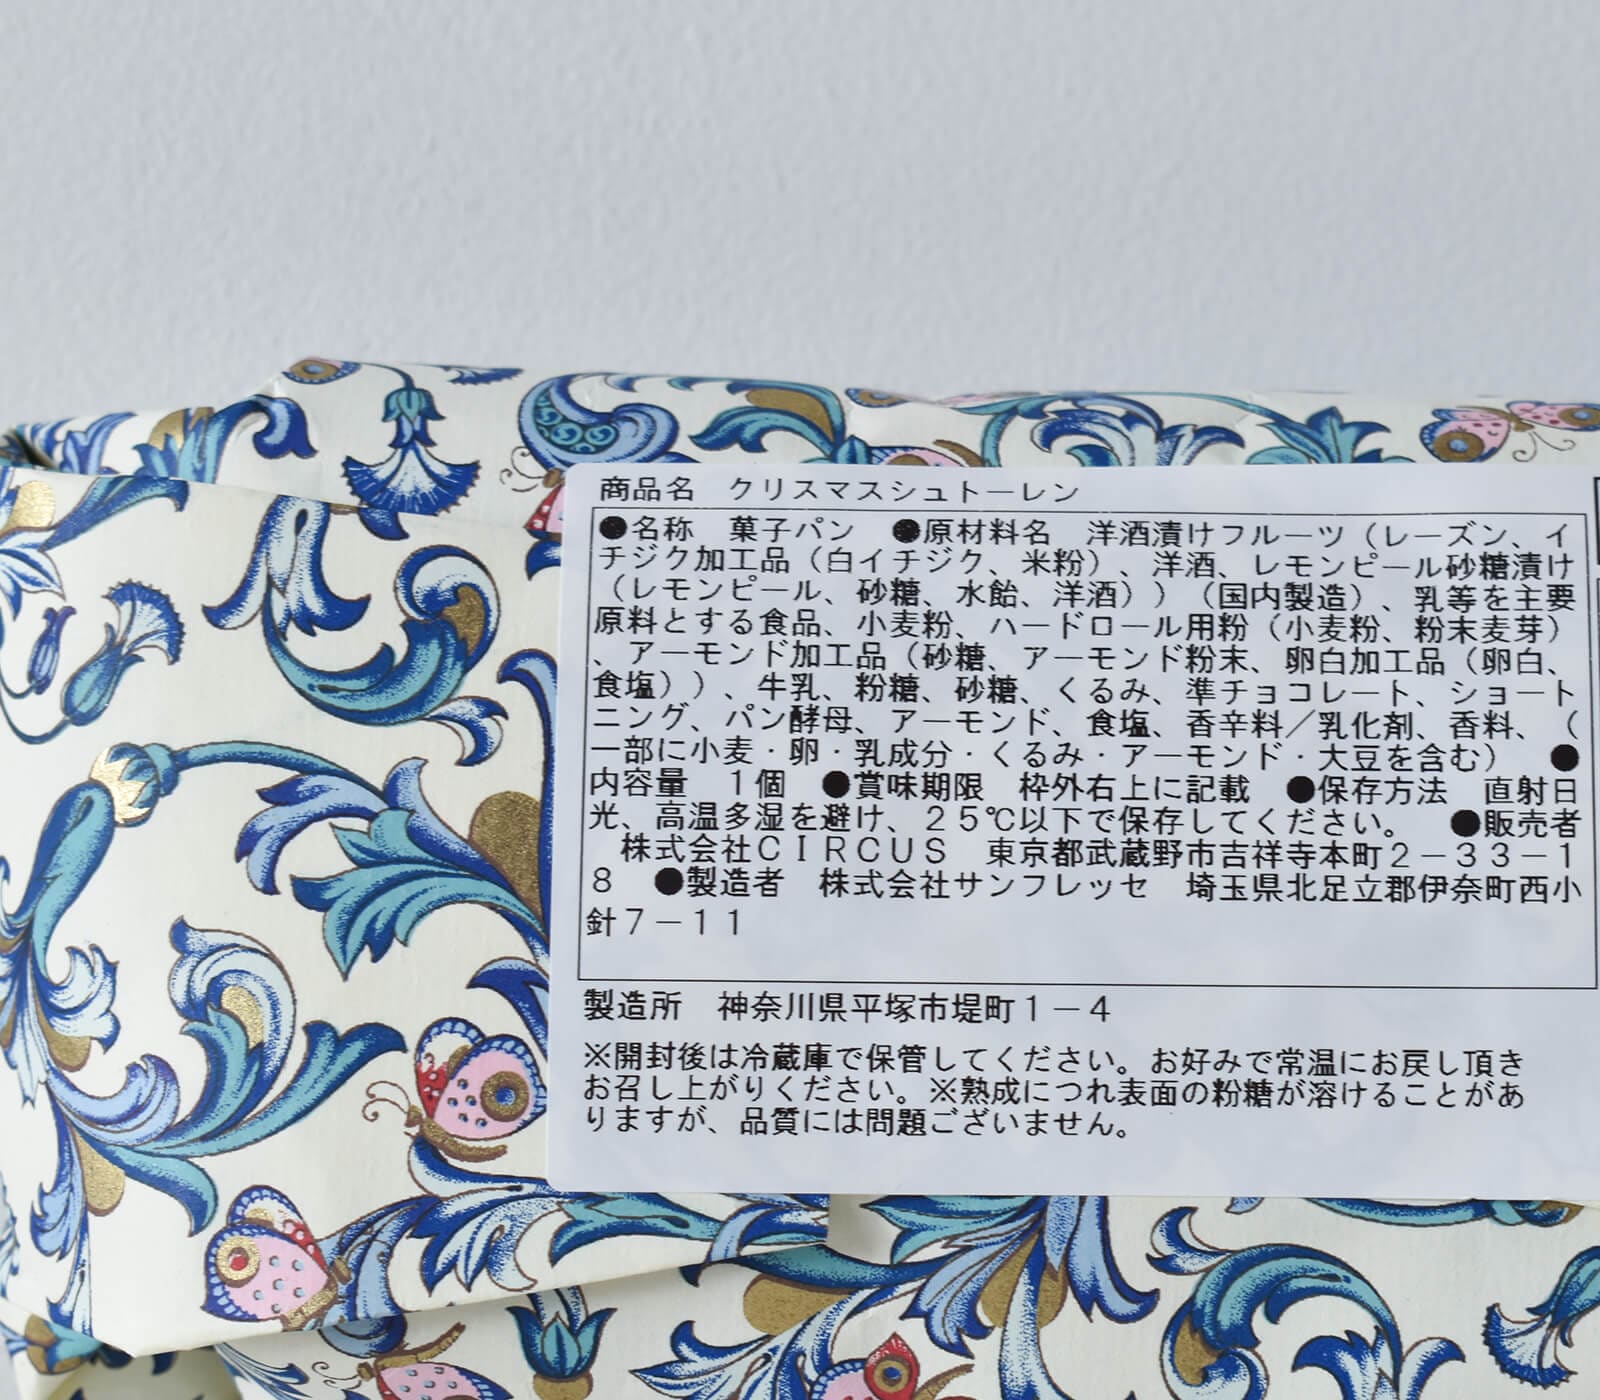 商品名　クリスマスシュトーレン
●名称　菓子パン　●原材料名　洋酒漬けフルーツ（レーズン、イ
チジク加工品（白イチジク、米粉）、洋酒、レモンピール砂糖漬け
（レモンピール、砂糖、水飴、洋酒））（国内製造）、乳等を主要
原料とする食品、小麦粉、ハードロール用粉（小麦粉、粉末麦芽）
、アーモンド加工品（砂糖、アーモンド粉末、卵白加工品（卵白、
食塩））、牛乳、粉糖、砂糖、くるみ、準チョコレート、ショート
ニング、パン酵母、アーモンド、食塩、香辛料／乳化剤、香料、（
一部に小麦・卵・乳成分・くるみ・アーモンド・大豆を含む）　●
内容量　１個　●賞味期限　枠外右上に記載　●保存方法　直射日
光、高温多湿を避け、２５℃以下で保存してください。　●販売者
　株式会社ＣＩＲＣＵＳ　東京都武蔵野市吉祥寺本町２－３３－１
８　●製造者　株式会社サンフレッセ　埼玉県北足立郡伊奈町西小
針７－１１
製造所　神奈川県平塚市堤町１－４
※開封後は冷蔵庫で保管してください。お好みで常温にお戻し頂き
お召し上がりください。※熟成につれ表面の粉糖が溶けることがあ
りますが、品質には問題ございません。